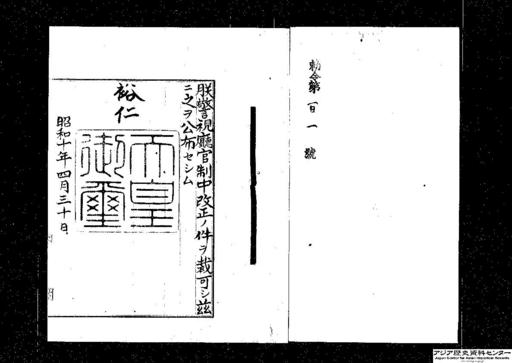 勅令第百一號
朕警視廳官制中改正ノ件ヲ裁可シ茲
ニ之ヲ公布セシム
裕仁
天皇
御璽
昭和十年四月三十日
アジア歴史資料センター
Japan Center for Asian Historical Records